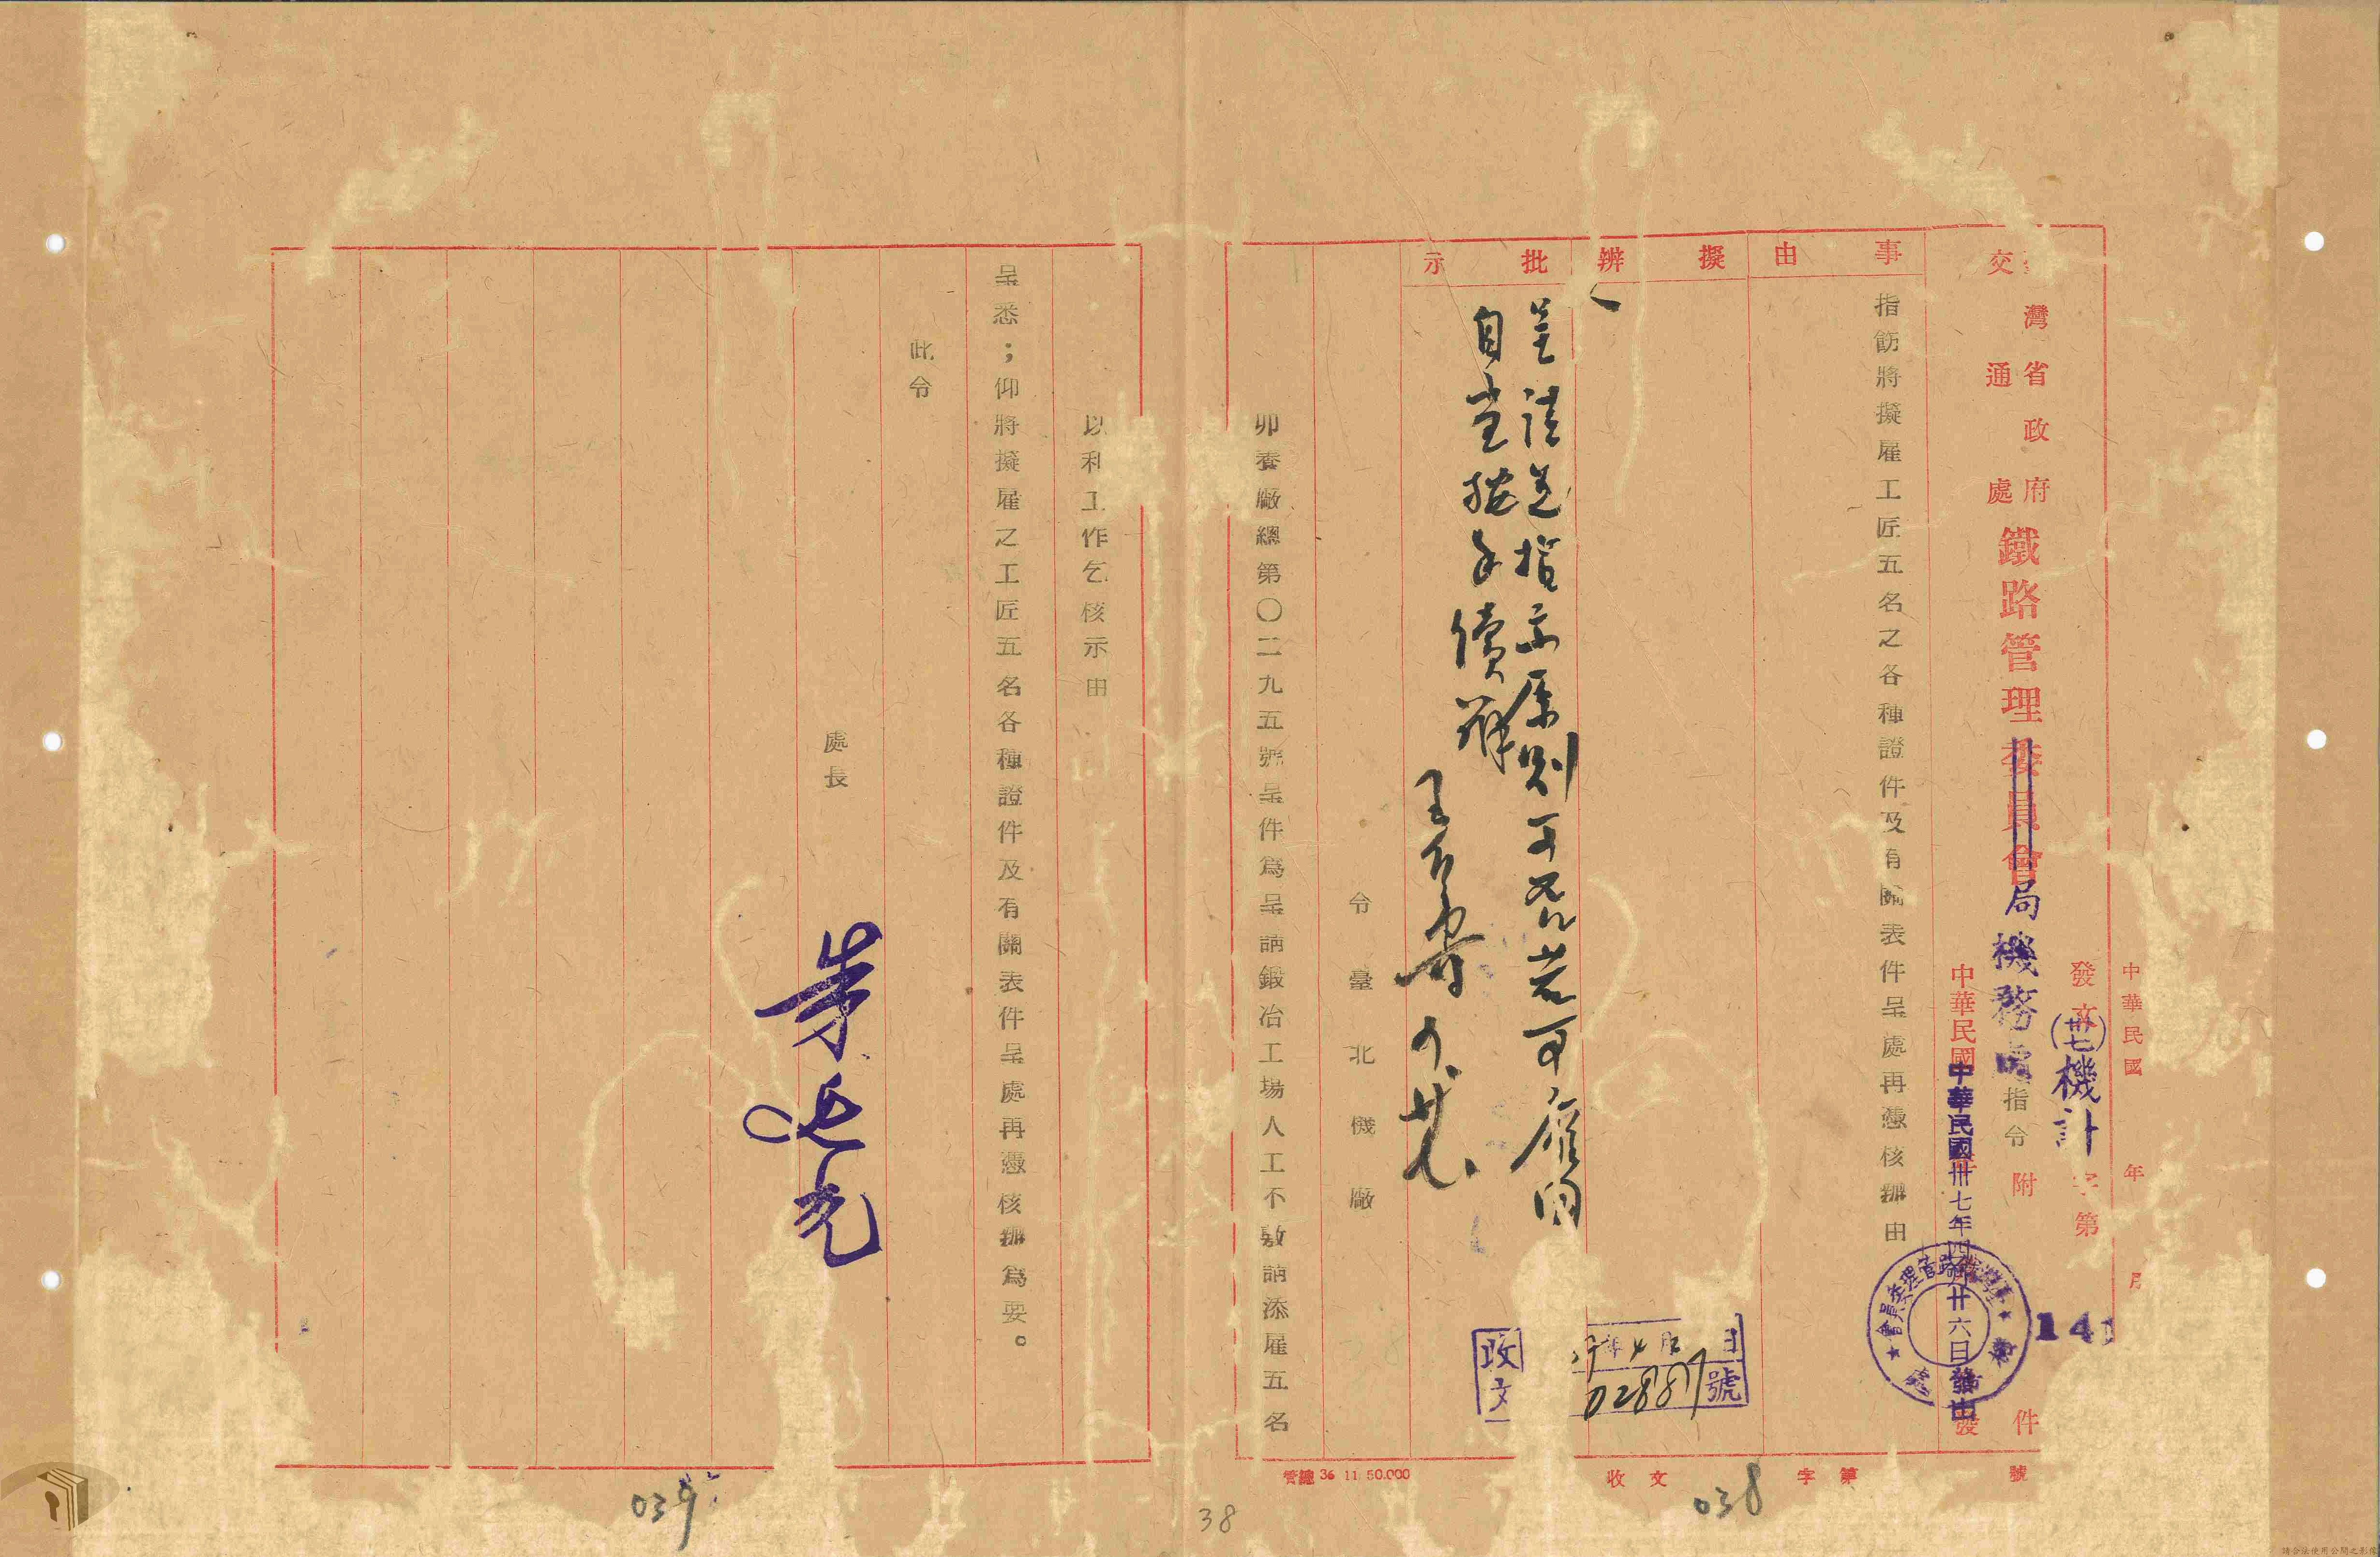 中華民國 年 月
發文 字第
(卅七)機計
141
灣省政府
交通處
鐵路管理委員會局機務處指令 附 件
中華民國
中華民國卅七年四月廿六日發出
事由
擬辦
批示
指飭將擬雇工匠五名之各種證件及有關表件呈處再憑核辦由
呈請 指示原則可否若可雇用
自當 手續辦
收文 字第 號
政
文
年4月 日
02887號
038
管總 36 11 50.000
令臺北機廠
卯養廠總第〇二九五號呈件爲呈請鍛冶工場人工不敷請添雇五名
38
以利工作乞核示由
呈悉；仰將擬雇之工匠五名各種證件及有關表件呈處再憑核辦爲要。
此令
處長
039
請合法使用公開之影像